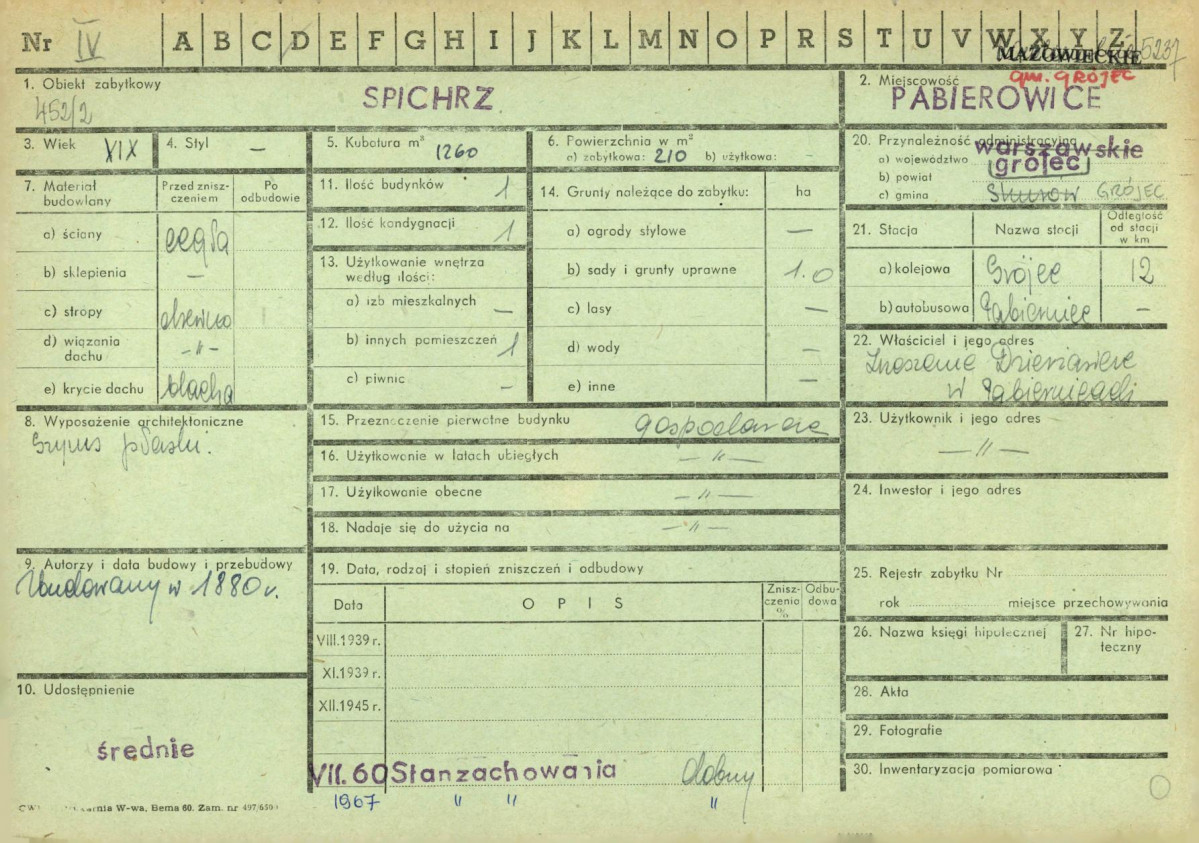 Nr IV A B C D E F G H I J K L M N O P R S T U V W X Y Z 5237
MAZOWIECKIE
gm. GRÓJEC
1. Obiekt zabytkowy
452/2
SPICHRZ
2. Miejscowość
PABIEROWICE
3. Wiek XIX
4. Styl —
5. Kubatura m³ 1260
6. Powierzchnia w m²
a) zabytkowa: 210 b) użytkowa: -
20. Przynależność administracyjna
a) województwo warszawskie
b) powiat grójec
c) gmina GRÓJEC
7. Materiał budowlany
Przed zniszczeniem
Po odbudowie
a) ściany cegła
b) sklepienia —
c) stropy drewno
d) wiązania dachu -"-
e) krycie dachu blacha
11. Ilość budynków 1
12. Ilość kondygnacji 1
13. Użytkowanie wnętrza według ilości:
a) izb mieszkalnych —
b) innych pomieszczeń 1
c) piwnic —
14. Grunty należące do zabytku: ha
a) ogrody stylowe —
b) sady i grunty uprawne 1.0
c) lasy —
d) wody —
e) inne —
21. Stacja
Nazwa stacji
Odległość od stacji w km
a) kolejowa Grójec 12
b) autobusowa —
22. Właściciel i jego adres
w
8. Wyposażenie architektoniczne
Gzyms płaski.
15. Przeznaczenie pierwotne budynku gospodarcze
16. Użytkowanie w latach ubiegłych — " —
17. Użytkowanie obecne — " —
18. Nadaje się do użycia na — " —
23. Użytkownik i jego adres
— " —
24. Inwestor i jego adres
9. Autorzy i data budowy i przebudowy
Zbudowany w 1880 r.
19. Data, rodzaj i stopień zniszczeń i odbudowy
Data
OPIS
Zniszczenia %
Odbudowa
VIII.1939 r.
XI.1939 r.
XII.1945 r.
VII. 60 Stan zachowania dobry
1967 " " "
25. Rejestr zabytku Nr
rok miejsce przechowywania
26. Nazwa księgi hipotecznej
27. Nr hipoteczny
28. Akta
29. Fotografie
30. Inwentaryzacja pomiarowa
10. Udostępnienie
średnie
W-wa, Bema 60. Zam. nr 497/650